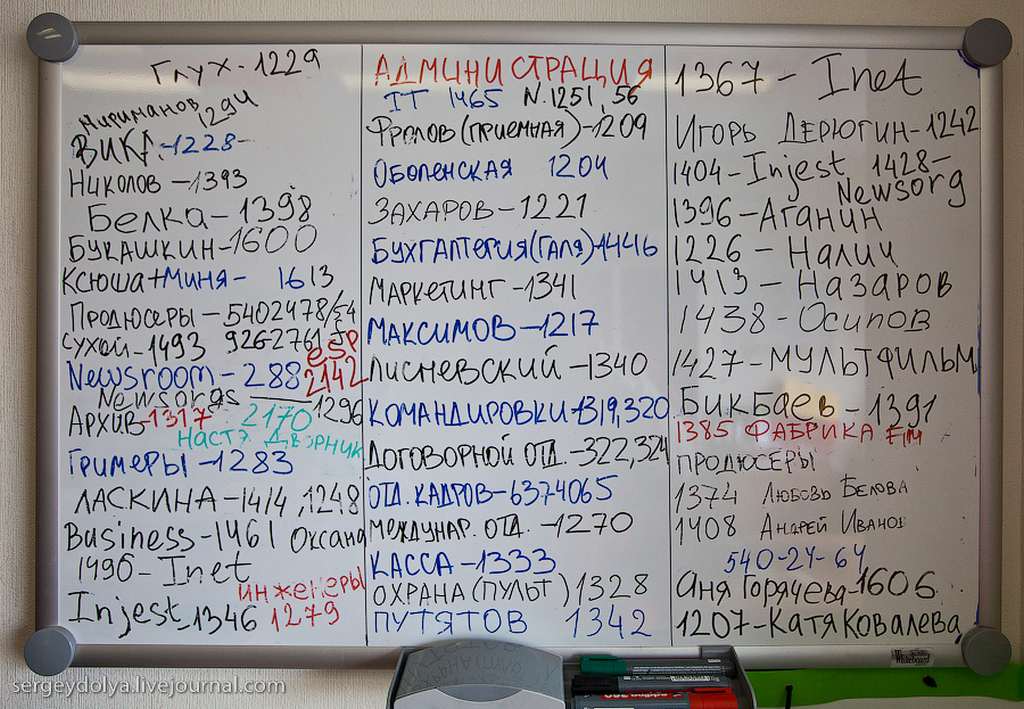 Глух - 1229
Мириманов 1294
ВИКА - 1228 -
Николов - 1393
Белка - 1398
Букашкин - 1600
Ксюша + Миня - 1613
Продюсеры - 5402478/
Сухой - 1493 926-2761
Newsroom - 288 2142
Newsorgs 1296
Архив - 1317 2170
Настэ Дворник
Гримеры - 1283
ЛАСКИНА - 1414, 1248
Business - 1461 Оксана
1490 - Inet
инженеры
Injest - 1346 1279
АДМИНИСТРАЦИЯ
IT 1465 N.1251, 56
Фролов (приемная) - 1209
Оболенская 1204
Захаров - 1221
Бухгалтерия (Галя) - 1446
Маркетинг - 1341
Максимов - 1217
Лисневский - 1340
Командировки - 1319, 320
Договорной отд. - 322, 324
Отд. кадров - 6374065
Междунар. отд. - 1270
Касса - 1333
Охрана (пульт) 1328
Путятов 1342
1367 - Inet
Игорь Дерюгин - 1242
1404 - Injest 1428 -
Newsorg
1396 - Аганин
1226 - Налич
1413 - Назаров
1438 - Осипов
1427 - Мультфильм
Бикбаев - 1391
1385 ФАБРИКА
ПРОДЮСЕРЫ
1374 Любовь Белова
1408 Андрей Иванов
540-24-64
Аня Горячева - 1606
1207 - Катя Ковалева
Whiteboard
sergeydolya.livejournal.com